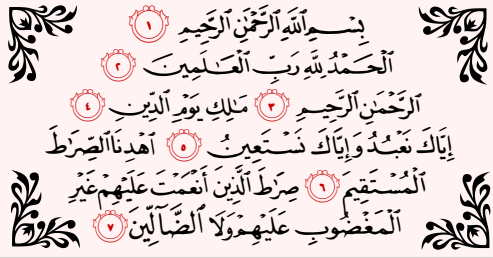 بِسْمِ ٱللَّهِ ٱلرَّحْمَٰنِ ٱلرَّحِيمِ ١
ٱلْحَمْدُ لِلَّهِ رَبِّ ٱلْعَٰلَمِينَ ٢
ٱلرَّحْمَٰنِ ٱلرَّحِيمِ ٣ مَٰلِكِ يَوْمِ ٱلدِّينِ ٤
إِيَّاكَ نَعْبُدُ وَإِيَّاكَ نَسْتَعِينُ ٥ ٱهْدِنَا ٱلصِّرَٰطَ
ٱلْمُسْتَقِيمَ ٦ صِرَٰطَ ٱلَّذِينَ أَنْعَمْتَ عَلَيْهِمْ غَيْرِ
ٱلْمَغْضُوبِ عَلَيْهِمْ وَلَا ٱلضَّآلِّينَ ٧